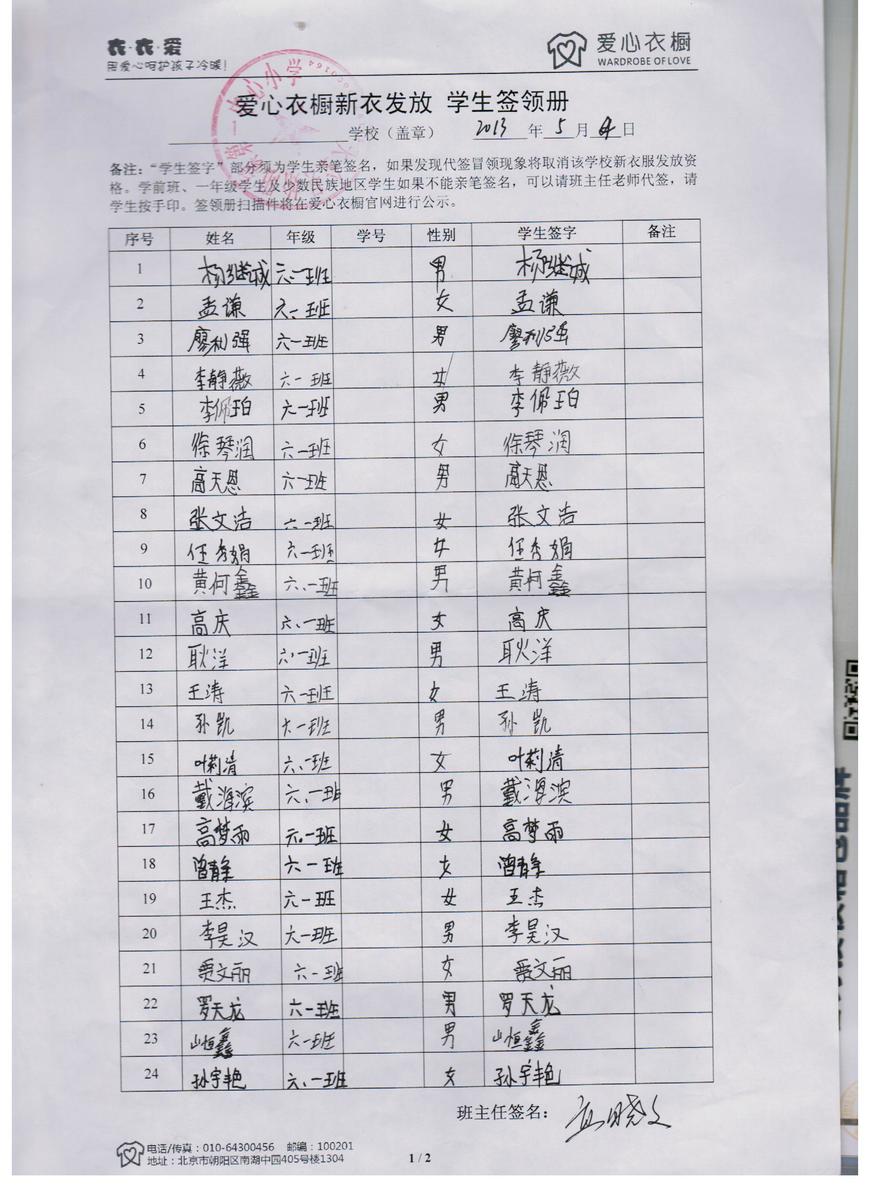 衣·衣·爱
用爱心呵护孩子冷暖!
爱心衣橱
WARDROBE OF LOVE
第一中心小学
爱心衣橱新衣发放 学生签领册
学校（盖章） 2013 年 5 月 日
备注：“学生签字”部分须为学生亲笔签名，如果发现代签冒领现象将取消该学校新衣服发放资
格。学前班、一年级学生及少数民族地区学生如果不能亲笔签名，可以请班主任老师代签，请
学生按手印。签领册扫描件将在爱心衣橱官网进行公示。
序号 姓名 年级 学号 性别 学生签字 备注
1 杨继城 六.一班 男 杨继城
2 孟谦 六一班 女 孟谦
3 廖利强 六一班 男 廖利强
4 李静薇 六一班 女 李静薇
5 李佩珀 六一班 男 李佩珀
6 徐琴润 六一班 女 徐琴润
7 高天恩 六一班 男 高天恩
8 张文洁 六一班 女 张文洁
9 任秀娟 六一班 女 任秀娟
10 黄何鑫 六.一班 男 黄柯鑫
11 高庆 六.一班 女 高庆
12 耿洋 六.一班 男 耿洋
13 王涛 六一班 女 王涛
14 孙凯 六一班 男 孙凯
15 叶莉清 六.一班 女 叶莉清
16 戴海滨 六.一班 男 戴海滨
17 高梦雨 六.一班 女 高梦雨
18 曾静 六一班 女 曾静
19 王杰 六一班 女 王杰
20 李昊汉 六一班 男 李昊汉
21 贾文丽 六.一班 女 贾文丽
22 罗天龙 六一班 男 罗天龙
23 山恒鑫 六一班 男 山恒鑫
24 孙宇艳 六.一班 女 孙宇艳
班主任签名：
电话/传真：010-64300456 邮编：100201
地址：北京市朝阳区南湖中园405号楼1304
1 / 2